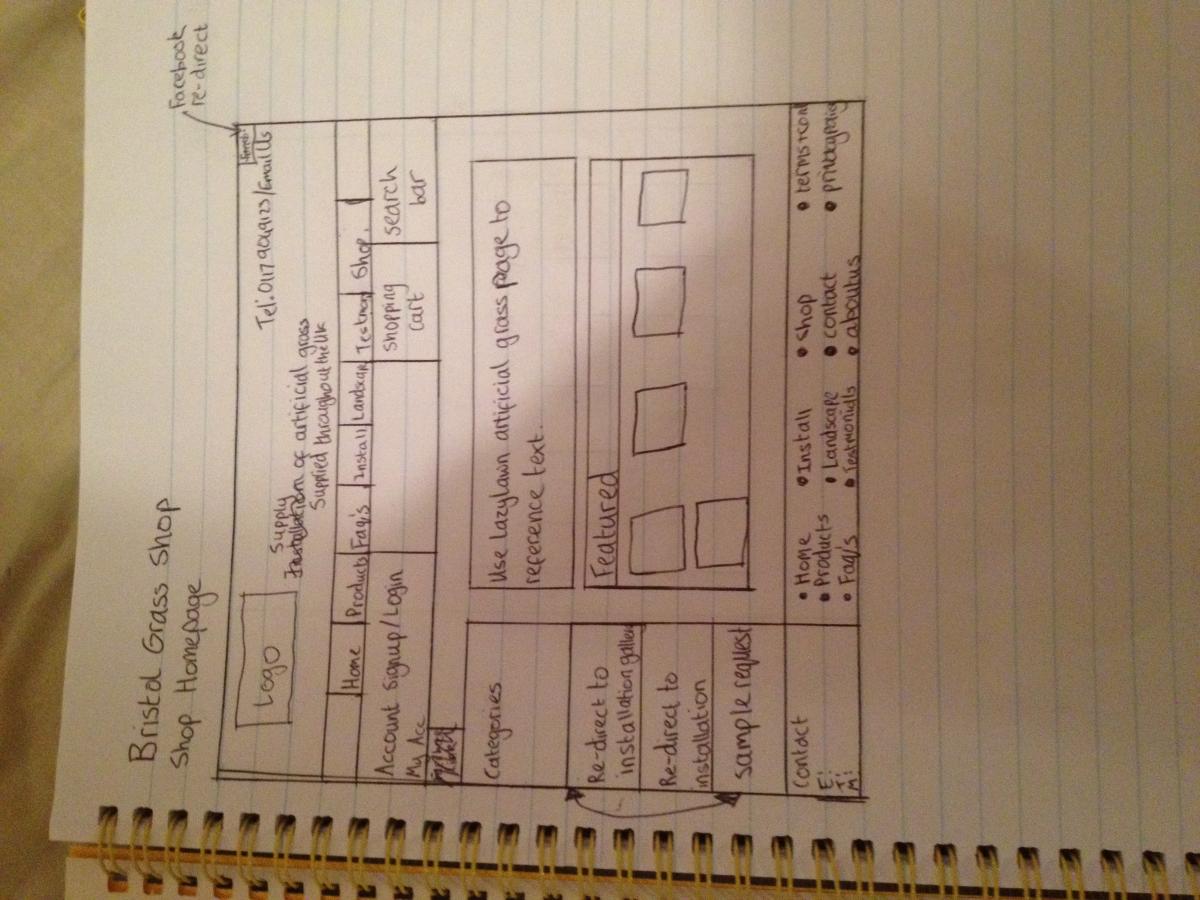 Bristol Grass Shop
Shop Homepage
Facebook
re-direct
Logo
Supply
Installation of artificial grass
Supplied throughout the UK
Tel: 0117 9049123/Email Us
Home
Products
Faq's
Install
Landscap
Shop.
Account Signup/Login
My Acc
shopping
cart
search
bar
Categories
Use Lazylawn artificial grass page to
reference text.
Re-direct to
installation gallery
Re-direct to
installation
sample request
Featured
Contact
E:
T:
M:
• Home
• Products
• Faq's
• Install
• Landscape
• Testmonials
• Shop
• contact
• aboutus
• terms+con